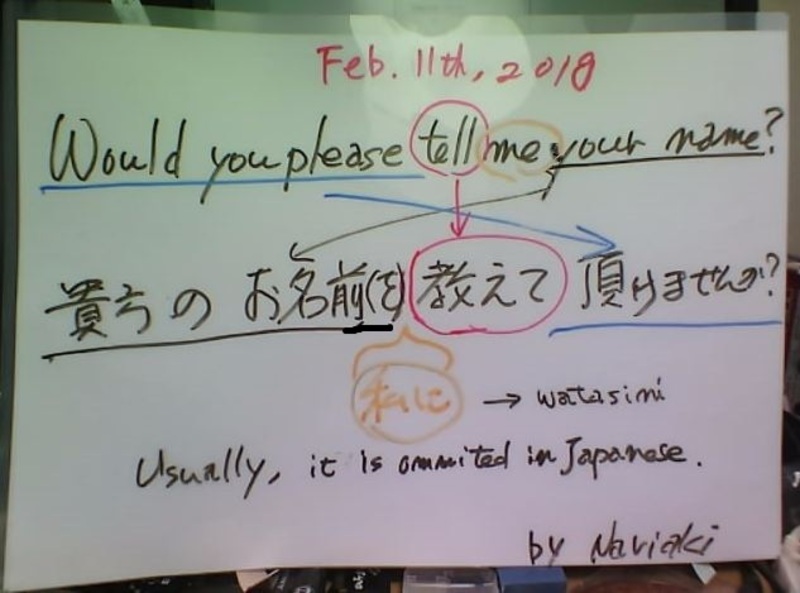 Feb. 11th, 2018
Would you please tell me your name?
貴方の お名前(を) 教えて 頂けませんか?
私に → watasini
Usually, it is ommited in Japanese.
by Nariaki